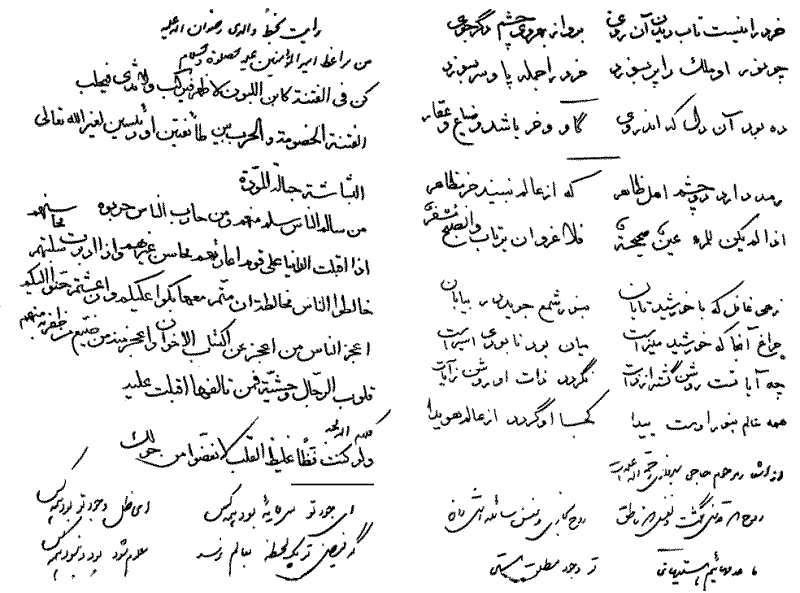 خرد را نیست تاب دیدن آن روی برو از بهر وی چشم دگر جوی
چو نور او ملک را پر بسوزد خرد را جمله پا و سر بسوزد
ده بود آن دل که اندر وی گاو و خر باشد و ضیاع و عقار
رمد دارد دو چشم اهل ظاهر که از عالم نبیند جز مظاهر
اذا لم یکن للمرء عین صحیحة فلا غرو ان یرتاب والصبح مسفر
زهی غافل که با خورشید تابان بنور شمع جوید در بیابان
چراغ آنجا که خورشید منیر است میان بود نابودی اسیر است
چه آیاتست روشن گشته از ذات نگردد ذات او روشن ز آیات
همه عالم بنور اوست پیدا کجا او گردد از عالم هویدا
مرحوم حاجی سبزواری رحمة الله علیه
ما عدمهائیم هستیها تو وجود مطلق
رایت بخط والدی رضوان الله علیه
من مواعظ امیر المؤمنین علیه الصلوة والسلام
کن فی الفتنة کابن اللبون لا ظهر فیرکب ولا ثدی فیحلب
الفتنة الخصومة والحرب بین طائفتین او رئیسین لغیر الله تعالی
البشاشة حبالة المودة
من سالم الناس سلم منهم ومن حارب الناس حربوه
اذا اقبلت الدنیا علی قوم اعارتهم محاسن غیرهم واذا ادبرت سلبتهم محاسنهم
خالطوا الناس مخالطة ان متم معها بکوا علیکم وان عشتم حنوا الیکم
اعجز الناس من اعجز عن اکتساب الاخوان واعجز منه من ضیع من ظفر به منهم
قلوب الرجال وحشیة فمن تالفها اقبلت علیه
ولو کنت فظا غلیظ القلب لانفضوا من حولک
ای جود تو سرمایهٔ بود همه کس ای ظل وجود تو وجود همه کس
گر فیض تو یک لحظه بعالم نرسد معلوم شود بود و نبود همه کس